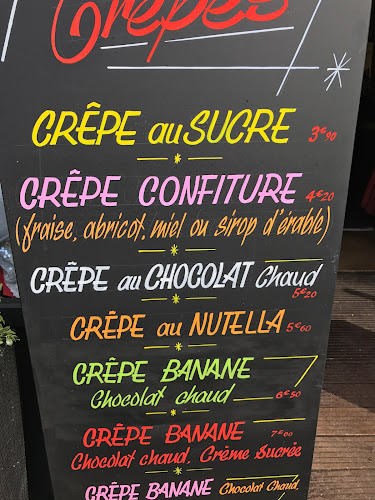 Crêpes
CRÊPE au SUCRE 3€90
CRÊPE CONFITURE 4€20
(fraise, abricot, miel ou sirop d'érable)
CRÊPE au CHOCOLAT Chaud
5€20
CRÊPE au NUTELLA 5€60
CRÊPE BANANE
Chocolat chaud 6€50
CRÊPE BANANE 7€00
Chocolat chaud, Crème Sucrée
CRÊPE BANANE Chocolat Chaud